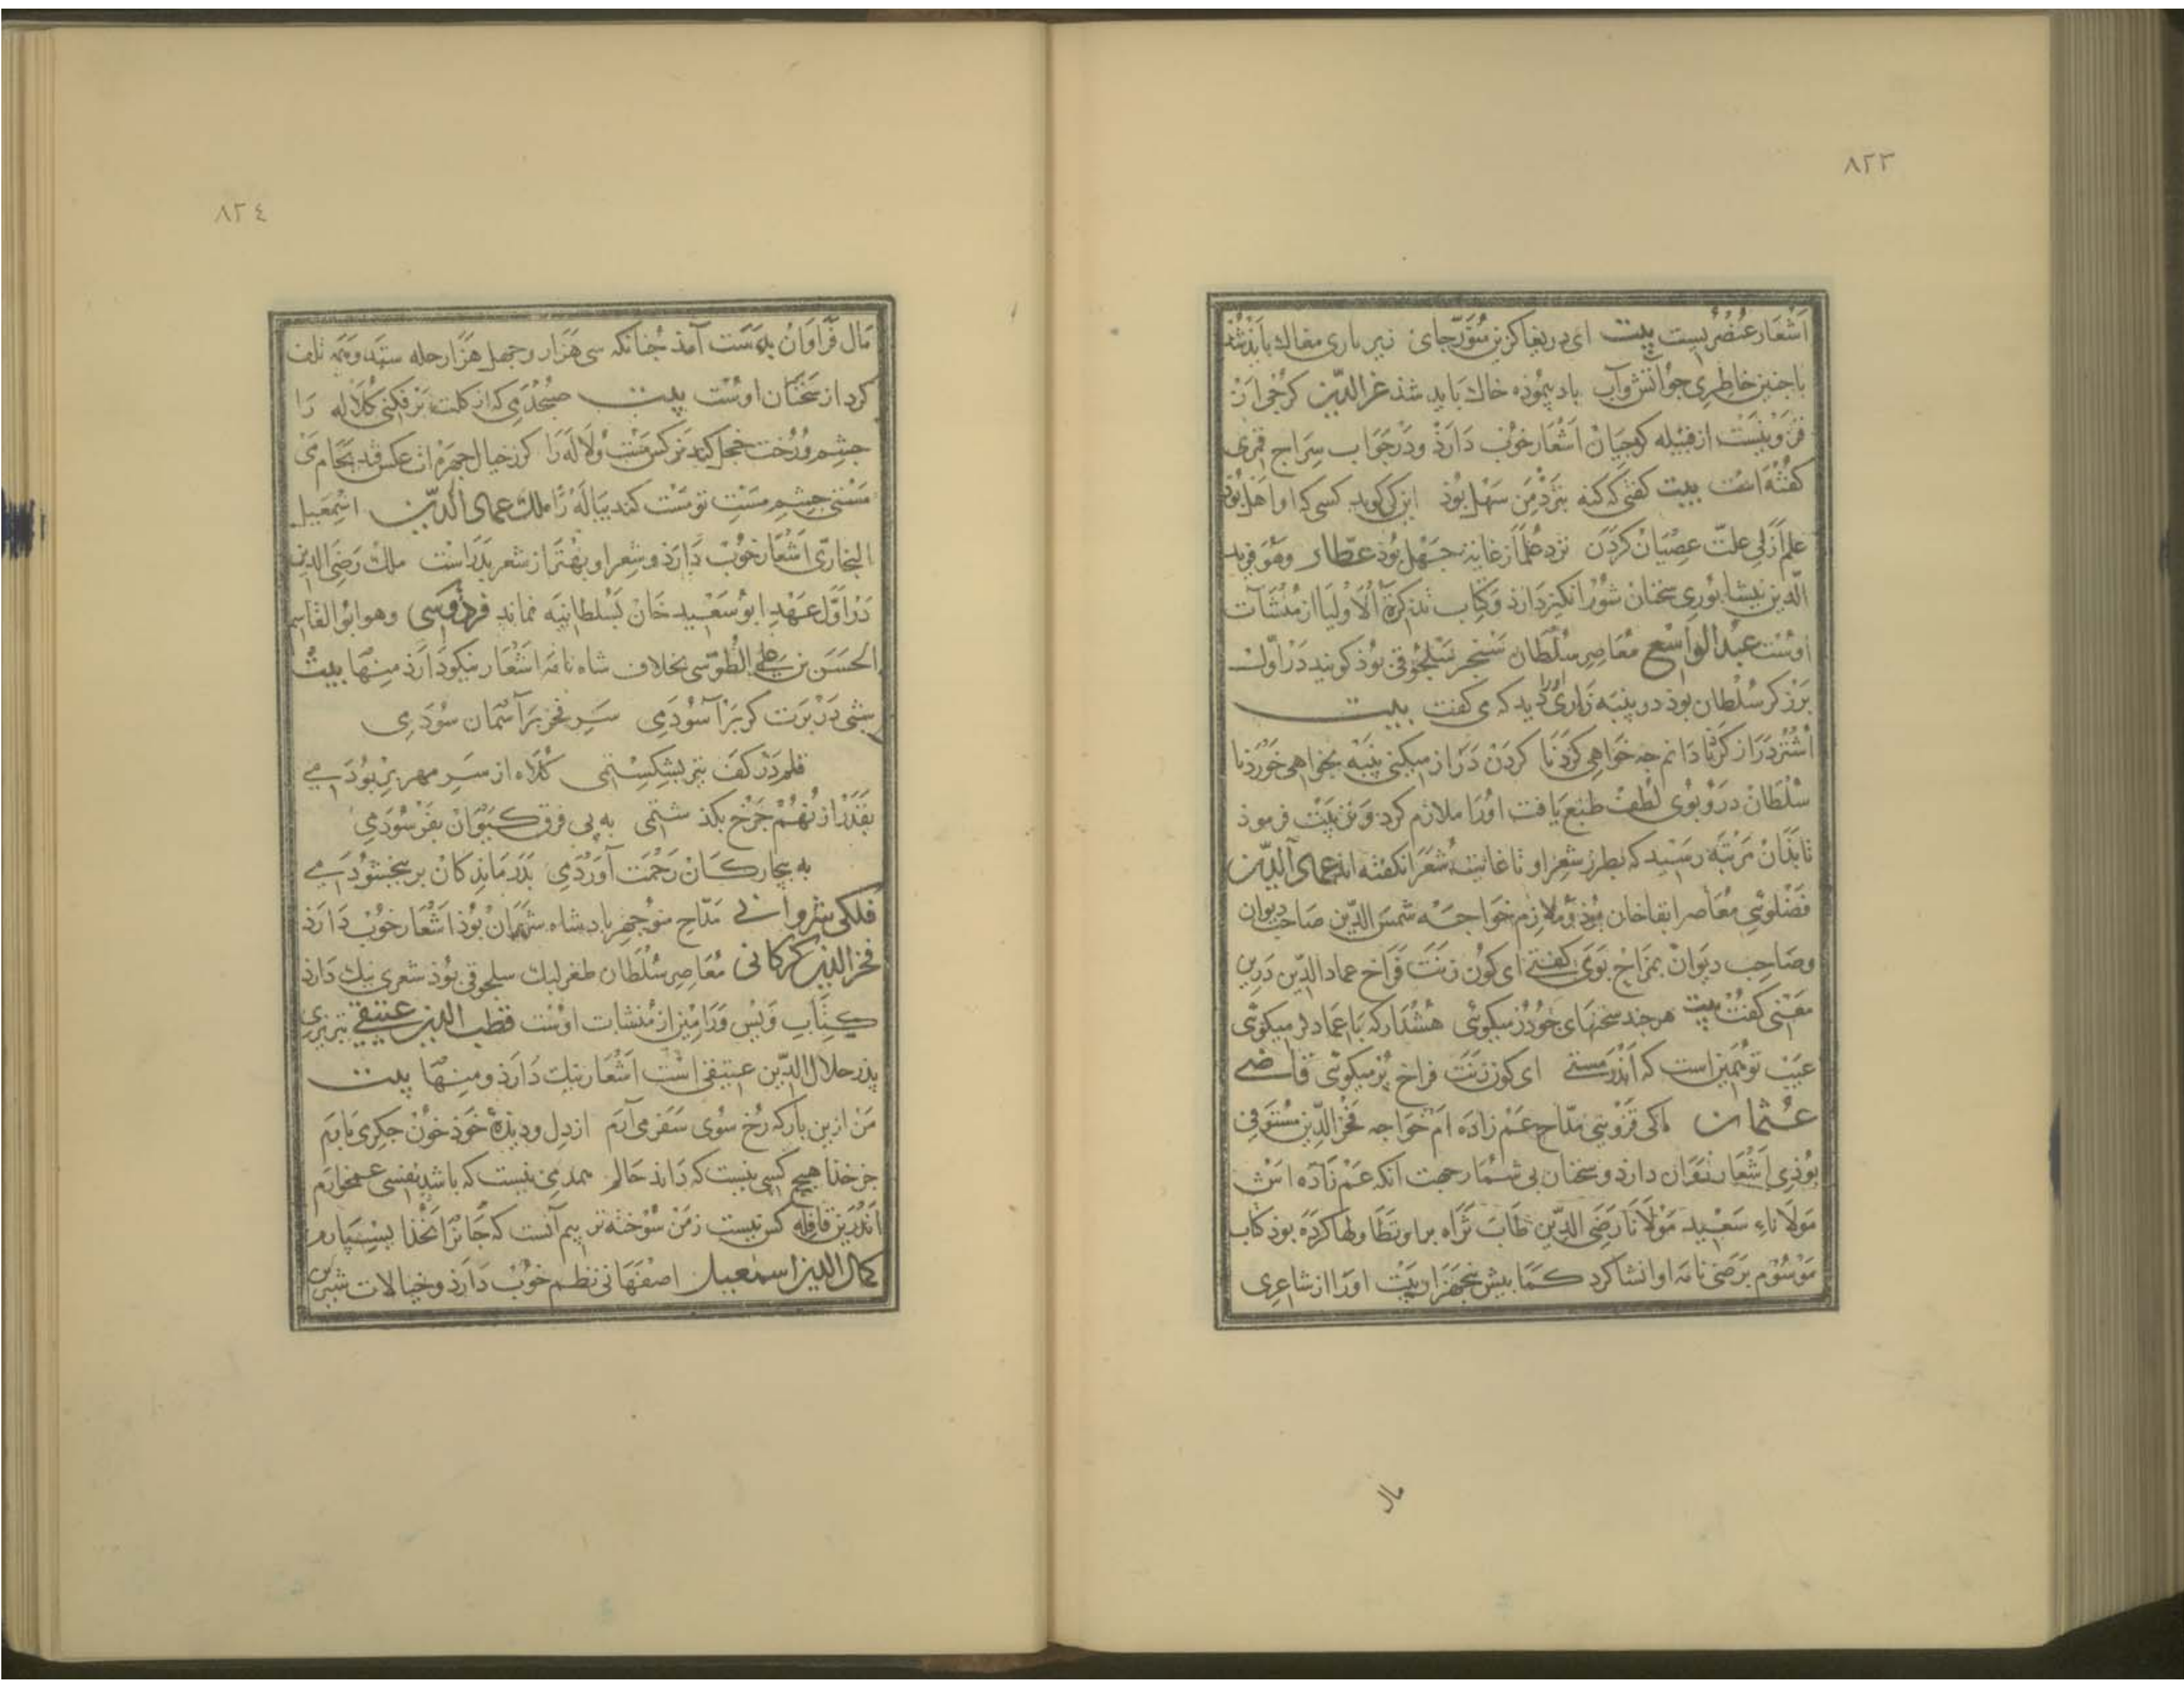 ٨٢٣
اشعار عنصریست بیت ای دریغا کزین منور جای زیر باری مغاك بایذ شذ
با جنین خاطری جو آتش و آب باد پیموذه خاك باید شذ عز الدین کرجی از
قزوینست از قبیله کرجیان اشعار خوب دارذ ودر جواب سراج قمری
کفته است بیت کفتی که کنه بنزد من سهل بوذ این کی کوید کسی که او اهل بوذ
علم ازلی علت عصیان کردن نزد علما ز غایة جهل بوذ عطار وهو فرید
الدین نیشابوری سخنان شور انکیز دارذ وکتاب تذکرة الاولیا از منشآت
اوست عبد الواسع معاصر سلطان سنجر سلجوقی بوذ کویند در اول
برزکر بوذ سلطان در پنبه زاری اورا دید که می کفت بیت
اشتر دراز کرنا دانم جه خواهی کردنا کردن دراز میکنی پنبه بخواهی خوردنا
سلطان درو بوی لطف طبع یافت اورا ملازم کرد وتربیت فرموذ
تا بذان مرتبه رسید که بطرز شعر او تا غایت شعرا نکفته اند عماد الدین
فضلوئی معاصر ابقا خان بوذ ملازم خواجه شمس الدین صاحب دیوان
وصاحب دیوان بمزاح بوی کفتی ای کون زنت فراخ عماد الدین درین
معنی کفت بیت هر جند سخنهای جو در میکوئی هشدار که با عماد لر میکوئی
عیب تو همین است که اندر مستی ای کون زنت فراخ پر میکوئی قاضی
عثمان ماکی قزوینی مداح عم زاده ام خواجه فخر الدین مستوفی
بوذی اشعار فراوان دارد وسخنان بی شمار جهت آنکه عم زاده اش
مولاناء سعید مولانا رضی الدین طاب ثراه براو تطاولها کرده بوذ کتاب
موسوم برضی نامه او انشا کرد کما بیش پنجهزار بیت اورا از شاعری
مال
٨٢٤
مال فراوان بدست آمد جنانکه سی هزار وجهل هزار حله ستد وهمه تلف
کرد از سخنان اوست بیت صبحدمی که از کلت برفکنی کلاله را
جشم ورخت خجل کند نرکس مست ولاله را کر ز خیال جهره ات عکس فتد بجام می
مستی جشم مست تو مست کند پیاله را ملك عماد الدین اسمعیل
البخاری اشعار خوب دارذ وشعر او بهتر از شعر پدر است ملك رضی الدین
در اول عهد ابو سعید خان بسلطانیه نماند فردوسی وهو ابو القاسم
الحسن بن علی الطوسی بخلاف شاه نامه اشعار نیکو دارذ منها بیت
شبی در برت کر بر آسودمی سر فخر بر آسمان سودمی
قلم در کف تیر بشکستمی کلاه از سر مهر بربودمی
بقدر از نهم جرخ بکذشتمی به پی فرق کیوان بفرسودمی
به بیجارکان رحمت آوردمی بدرماندکان بر ببخشودمی
فلکی شروانی مداح منوجهر بادشاه شروان بوذ اشعار خوب دارذ
فخر الدین کرکانی معاصر سلطان طغرلبك سلجوقی بوذ شعری نیك دارذ
کتاب ویس ورامین از منشات اوست قطب الدین عتیقی تبریزی
پدر جلال الدین عتیقی است اشعار نیك دارذ ومنها بیت
من ازین بار که رخ سوی سفر می آرم از دل ودیده خوذ خون جکری می بارم
جز خذا هیج کسی نیست که داند حالم همدمی نیست که باشد نفسی غمخوارم
اندرین قافله کس نیست ز من سوخته تر بیم آنست که جانرا بخذا بسپارم
کمال الدین اسمعیل اصفهانی نظم خوب دارذ وخیالات شیرین